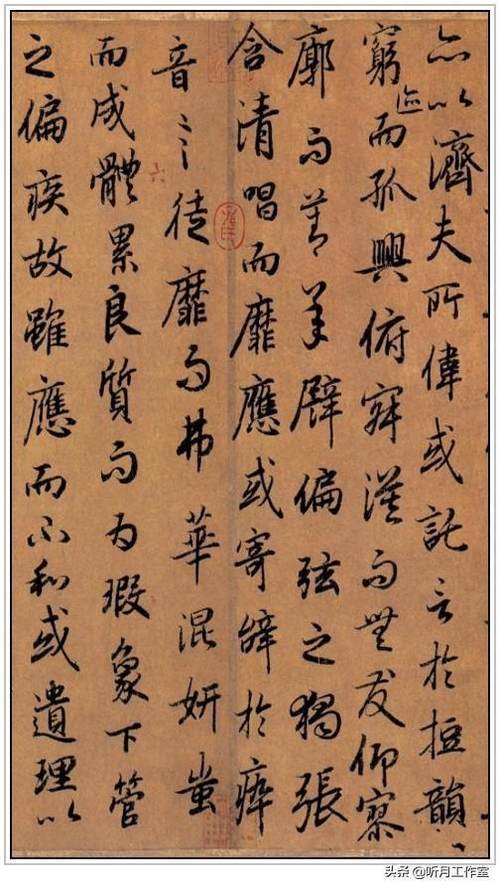 亦以濟夫所偉或託言於短韻
窮迹而孤興俯寂漠而無友仰寥
廓而莫承譬偏弦之獨張
含清唱而靡應或寄辭於瘁
音言徒靡而弗華混妍蚩
而成體累良質而為瑕象下管
之偏疾故雖應而不和或遺理以
头条 @听月工作室